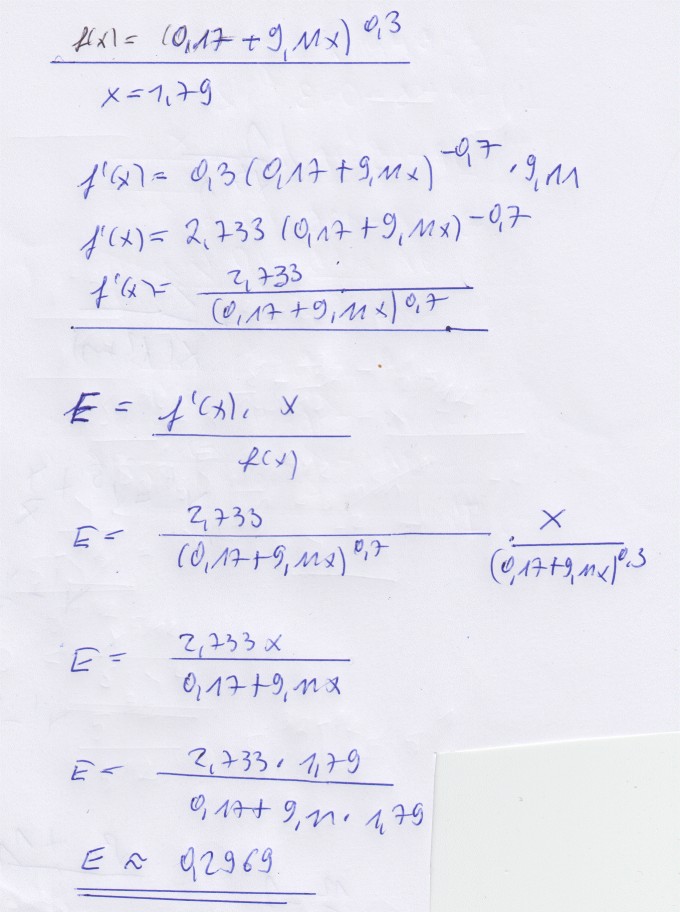 f(x) = (0,17 + 9,11x)^0,3
x = 1,79
f'(x) = 0,3 (0,17 + 9,11x)^-0,7 · 9,11
f'(x) = 2,733 (0,17 + 9,11x)^-0,7
f'(x) = 2,733 / (0,17 + 9,11x)^0,7
E = f'(x) · x / f(x)
E = 2,733 / (0,17 + 9,11x)^0,7 · x / (0,17 + 9,11x)^0,3
E = 2,733x / 0,17 + 9,11x
E = 2,733 · 1,79 / 0,17 + 9,11 · 1,79
E ≈ 0,2969